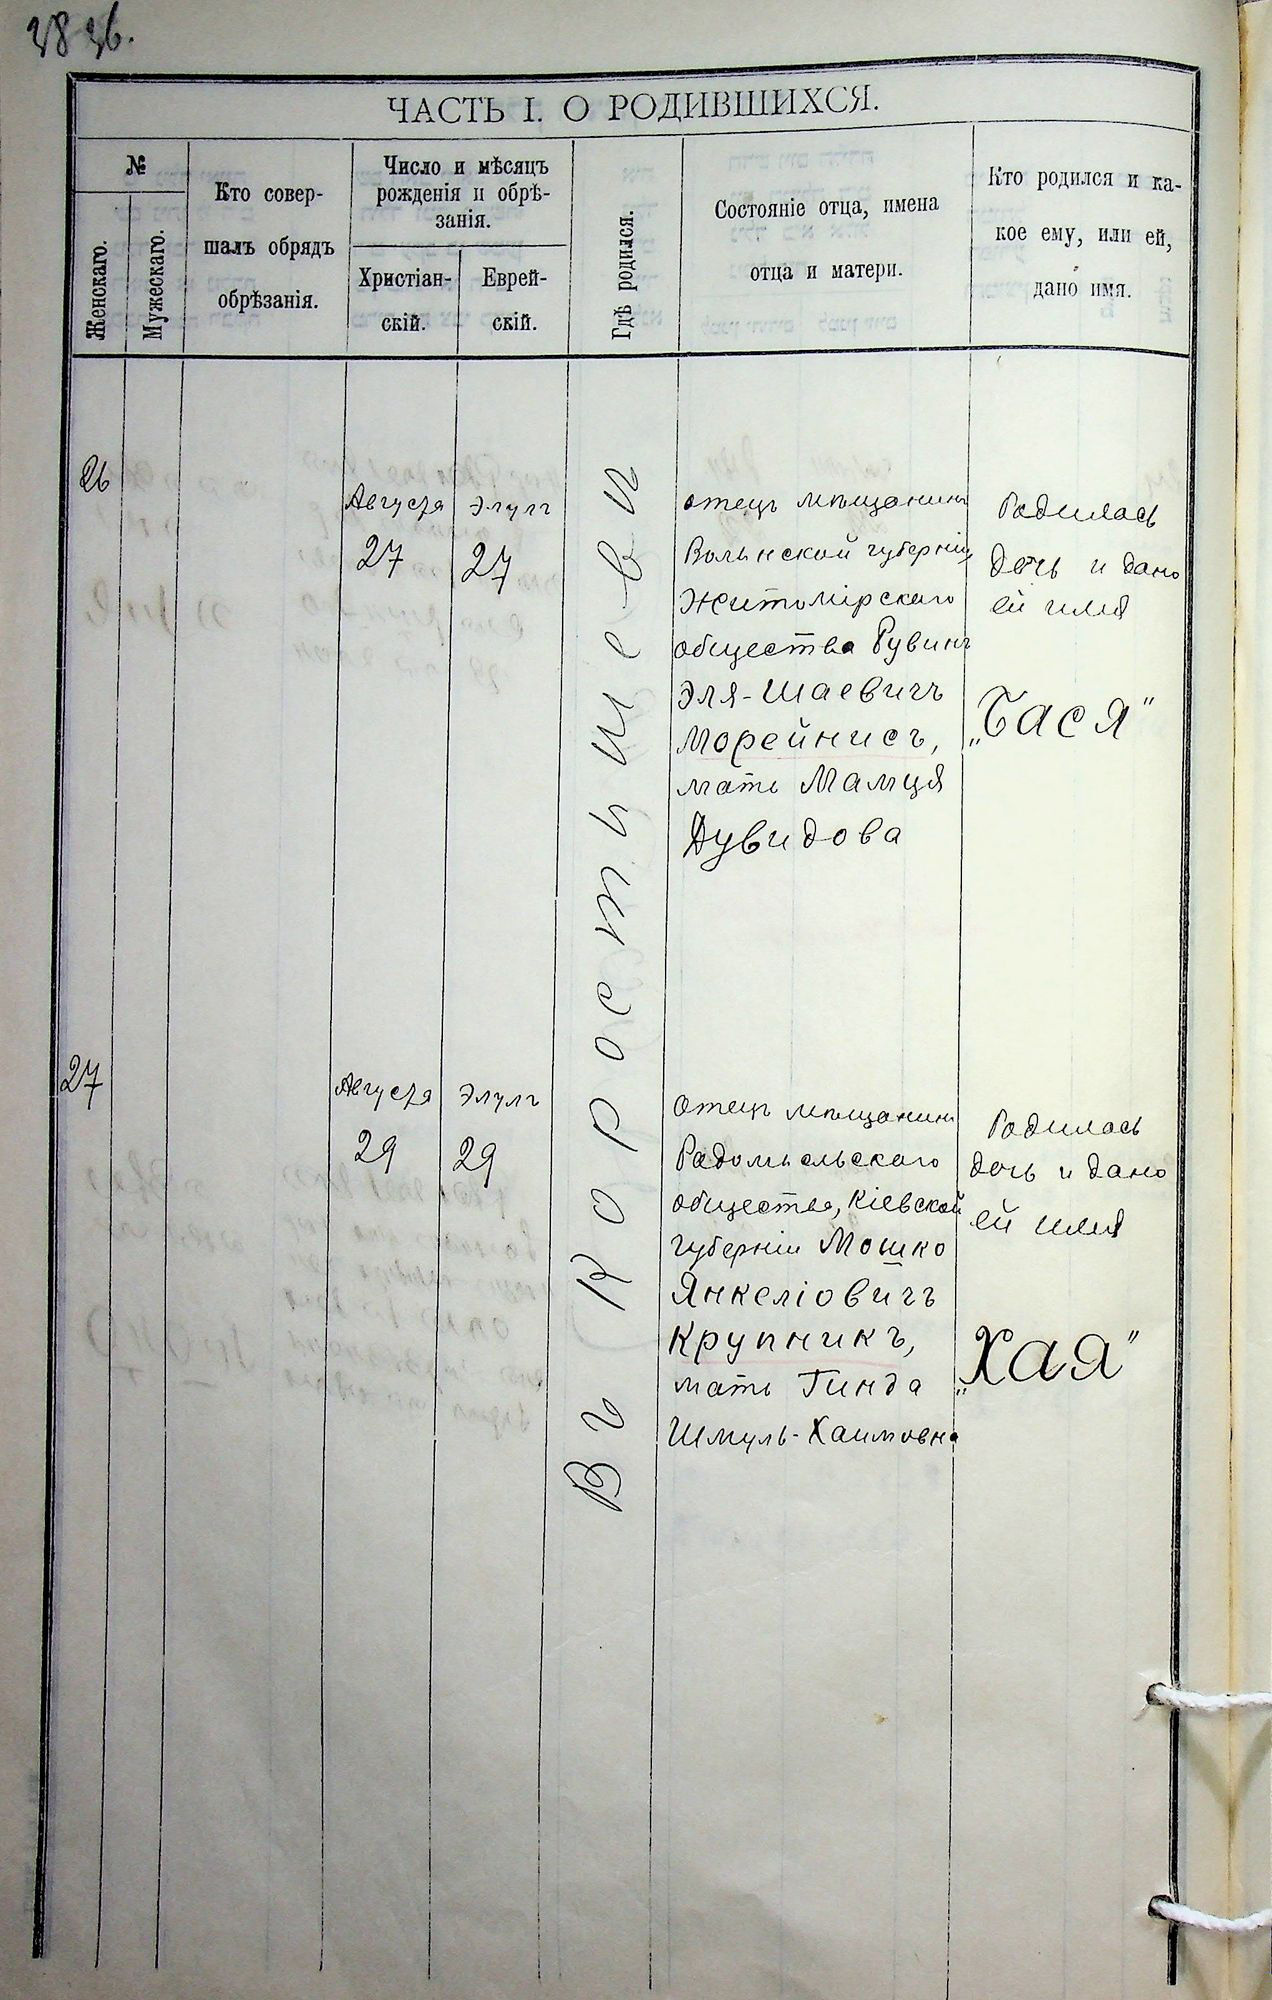 ЧАСТЬ I. О РОДИВШИХСЯ.
№
Женскаго.
Мужескаго.
Кто совер-
шалъ обрядъ
обрѣзанія.
Число и мѣсяцъ
рожденія и обрѣ-
занія.
Христіан-
скій.
Еврей-
скій.
Гдѣ родился.
Состояніе отца, имена
отца и матери.
Кто родился и ка-
кое ему, или ей,
дано имя.
Въ Коростишевѣ
26
Августа
27
Элулъ
27
отецъ мѣщанинъ
Волынской губерніи
Житомірскаго
общества Рувинъ
Эля-Шаевичъ
Морейнисъ,
мать Мамця
Дувидова
Родилась
дочь и дано
ей имя
„Бася"
27
Августа
29
Элулъ
29
отецъ мѣщанинъ
Радомысльскаго
общества, Кіевской
губерніи Мошко
Янкеліовичъ
Крупникъ,
мать Гинда
Шмуль-Хаимовна
Родилась
дочь и дано
ей имя
„Хая"